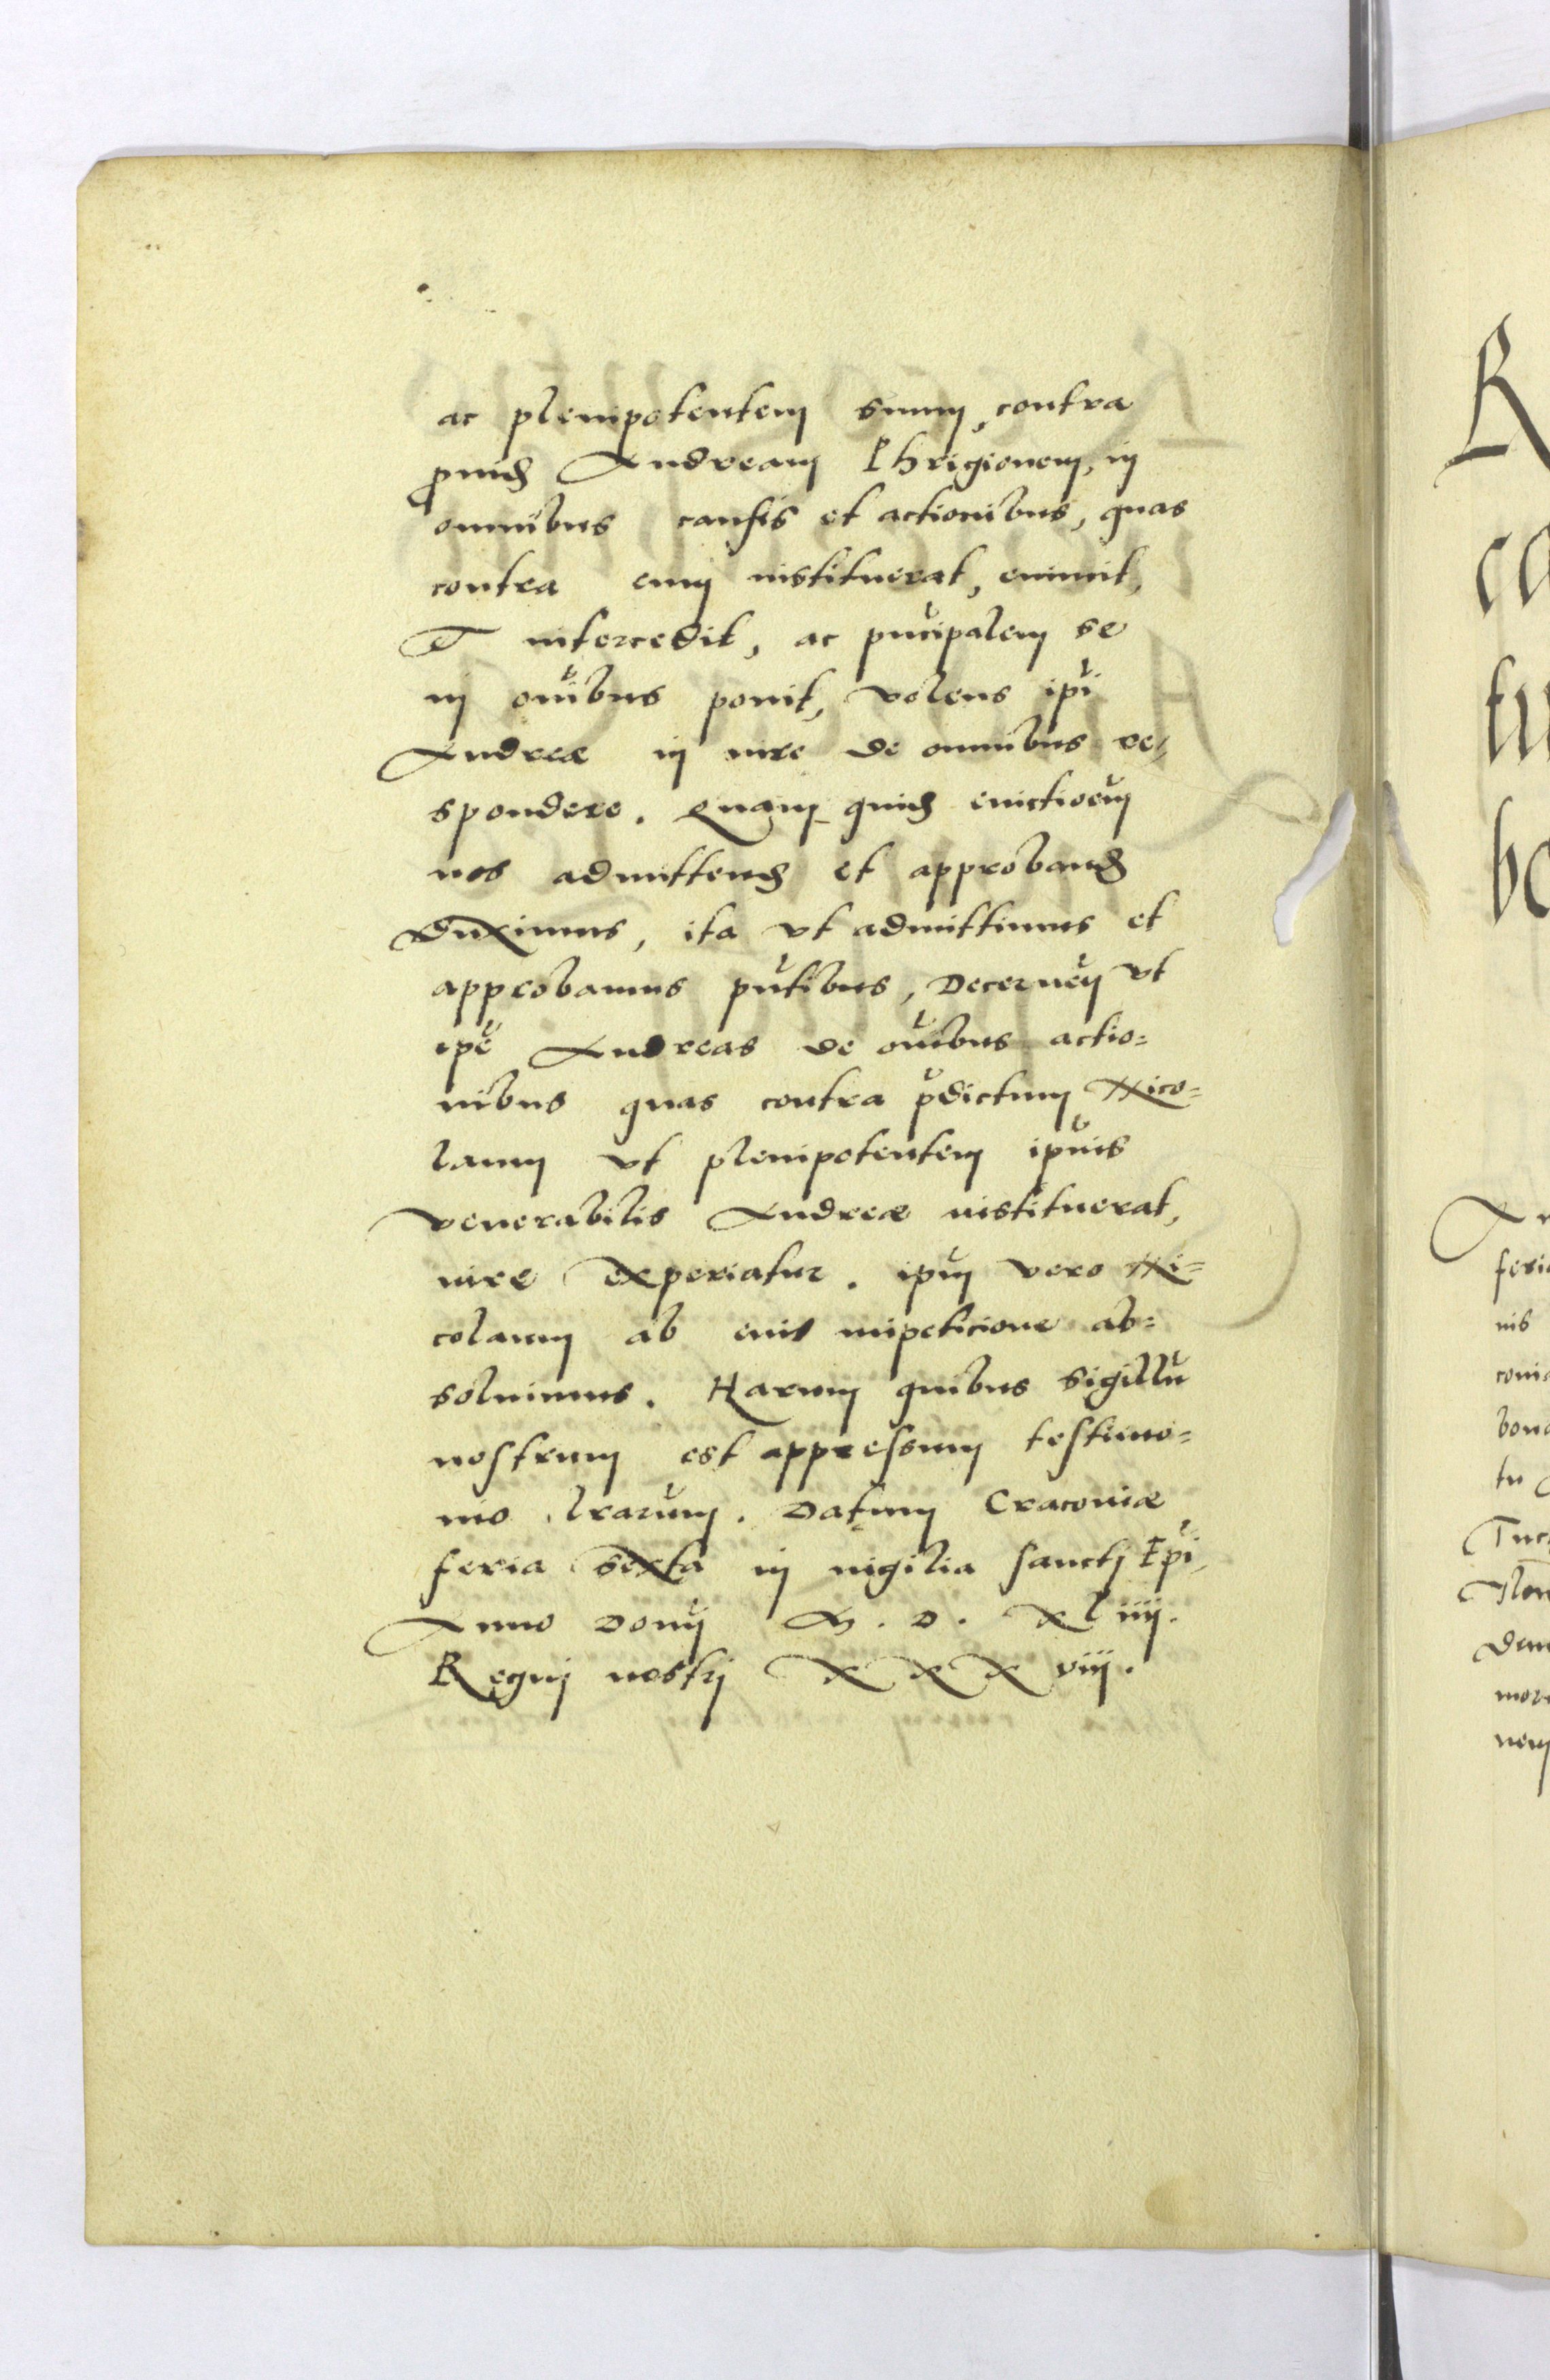 ac plenipotentem suum, contra
Andream Phrigionem, in
omnibus causis et actionibus, quas
contra eum instituerat, euincit,
et intercedit, ac pncipalem se
in oibus ponit, volens ipi
Andreæ in iure de omnibus re,
spondere. Quam quid euictioem
nos admittend et approband
duximus, ita vt admittimus et
approbamus pntibus, Decernen vt
ipe Andreas de oibus actio=
nibus quas contra pdictum Nico=
laum vt plenipotentem ipius
venerabilis Andreæ instituerat,
iure experiatur. ipm vero Ni=
colaum ab eius impeticione ab=
soluimus. Harum quibus sigillu
nostrum est appressum testimo=
nio lrarum. Datum Cracoviæ
feria sexta in vigilia sancti
Anno Domi M. D. xliiij.
Regni nostri xxxviij.
R
ca
tu
bo
feri
nis
bona
tu
dem
mor
nem